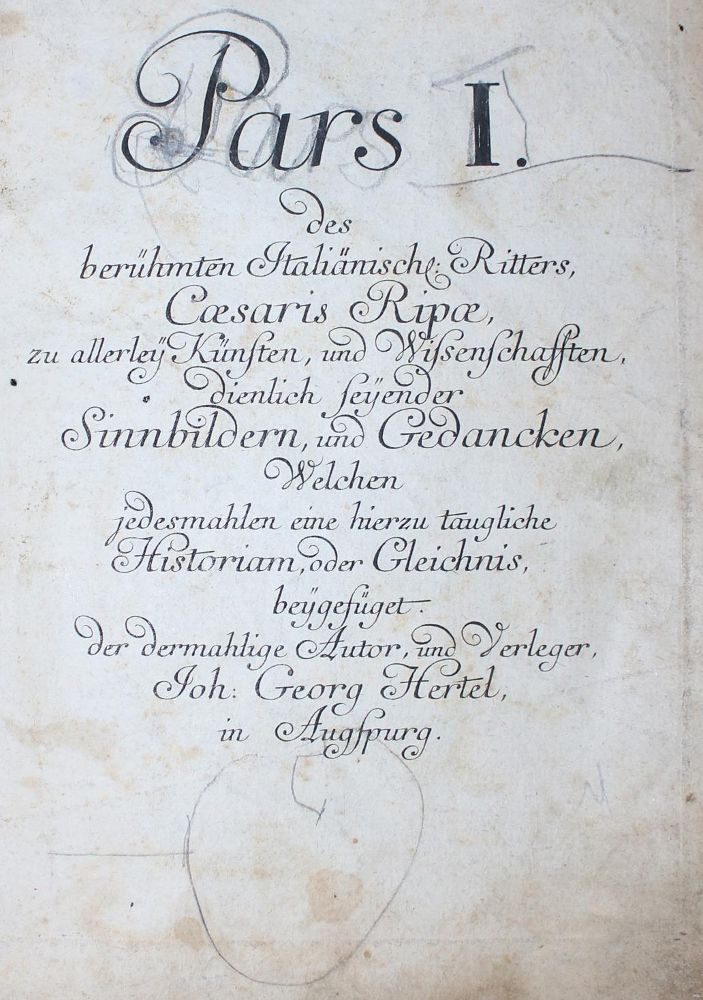 Pars I.
des
berühmten Italiänisch: Ritters,
Cæsaris Ripæ,
zu allerleÿ Künſten, und Wiſsenſchafften,
dienlich ſeÿender
Sinnbildern, und Gedancken,
Welchen
jedesmahlen eine hierzu taugliche
Historiam, oder Gleichnis,
beÿgefüget.
der dermahlige Autor, und Verleger,
Joh: Georg Hertel,
in Augſpurg.